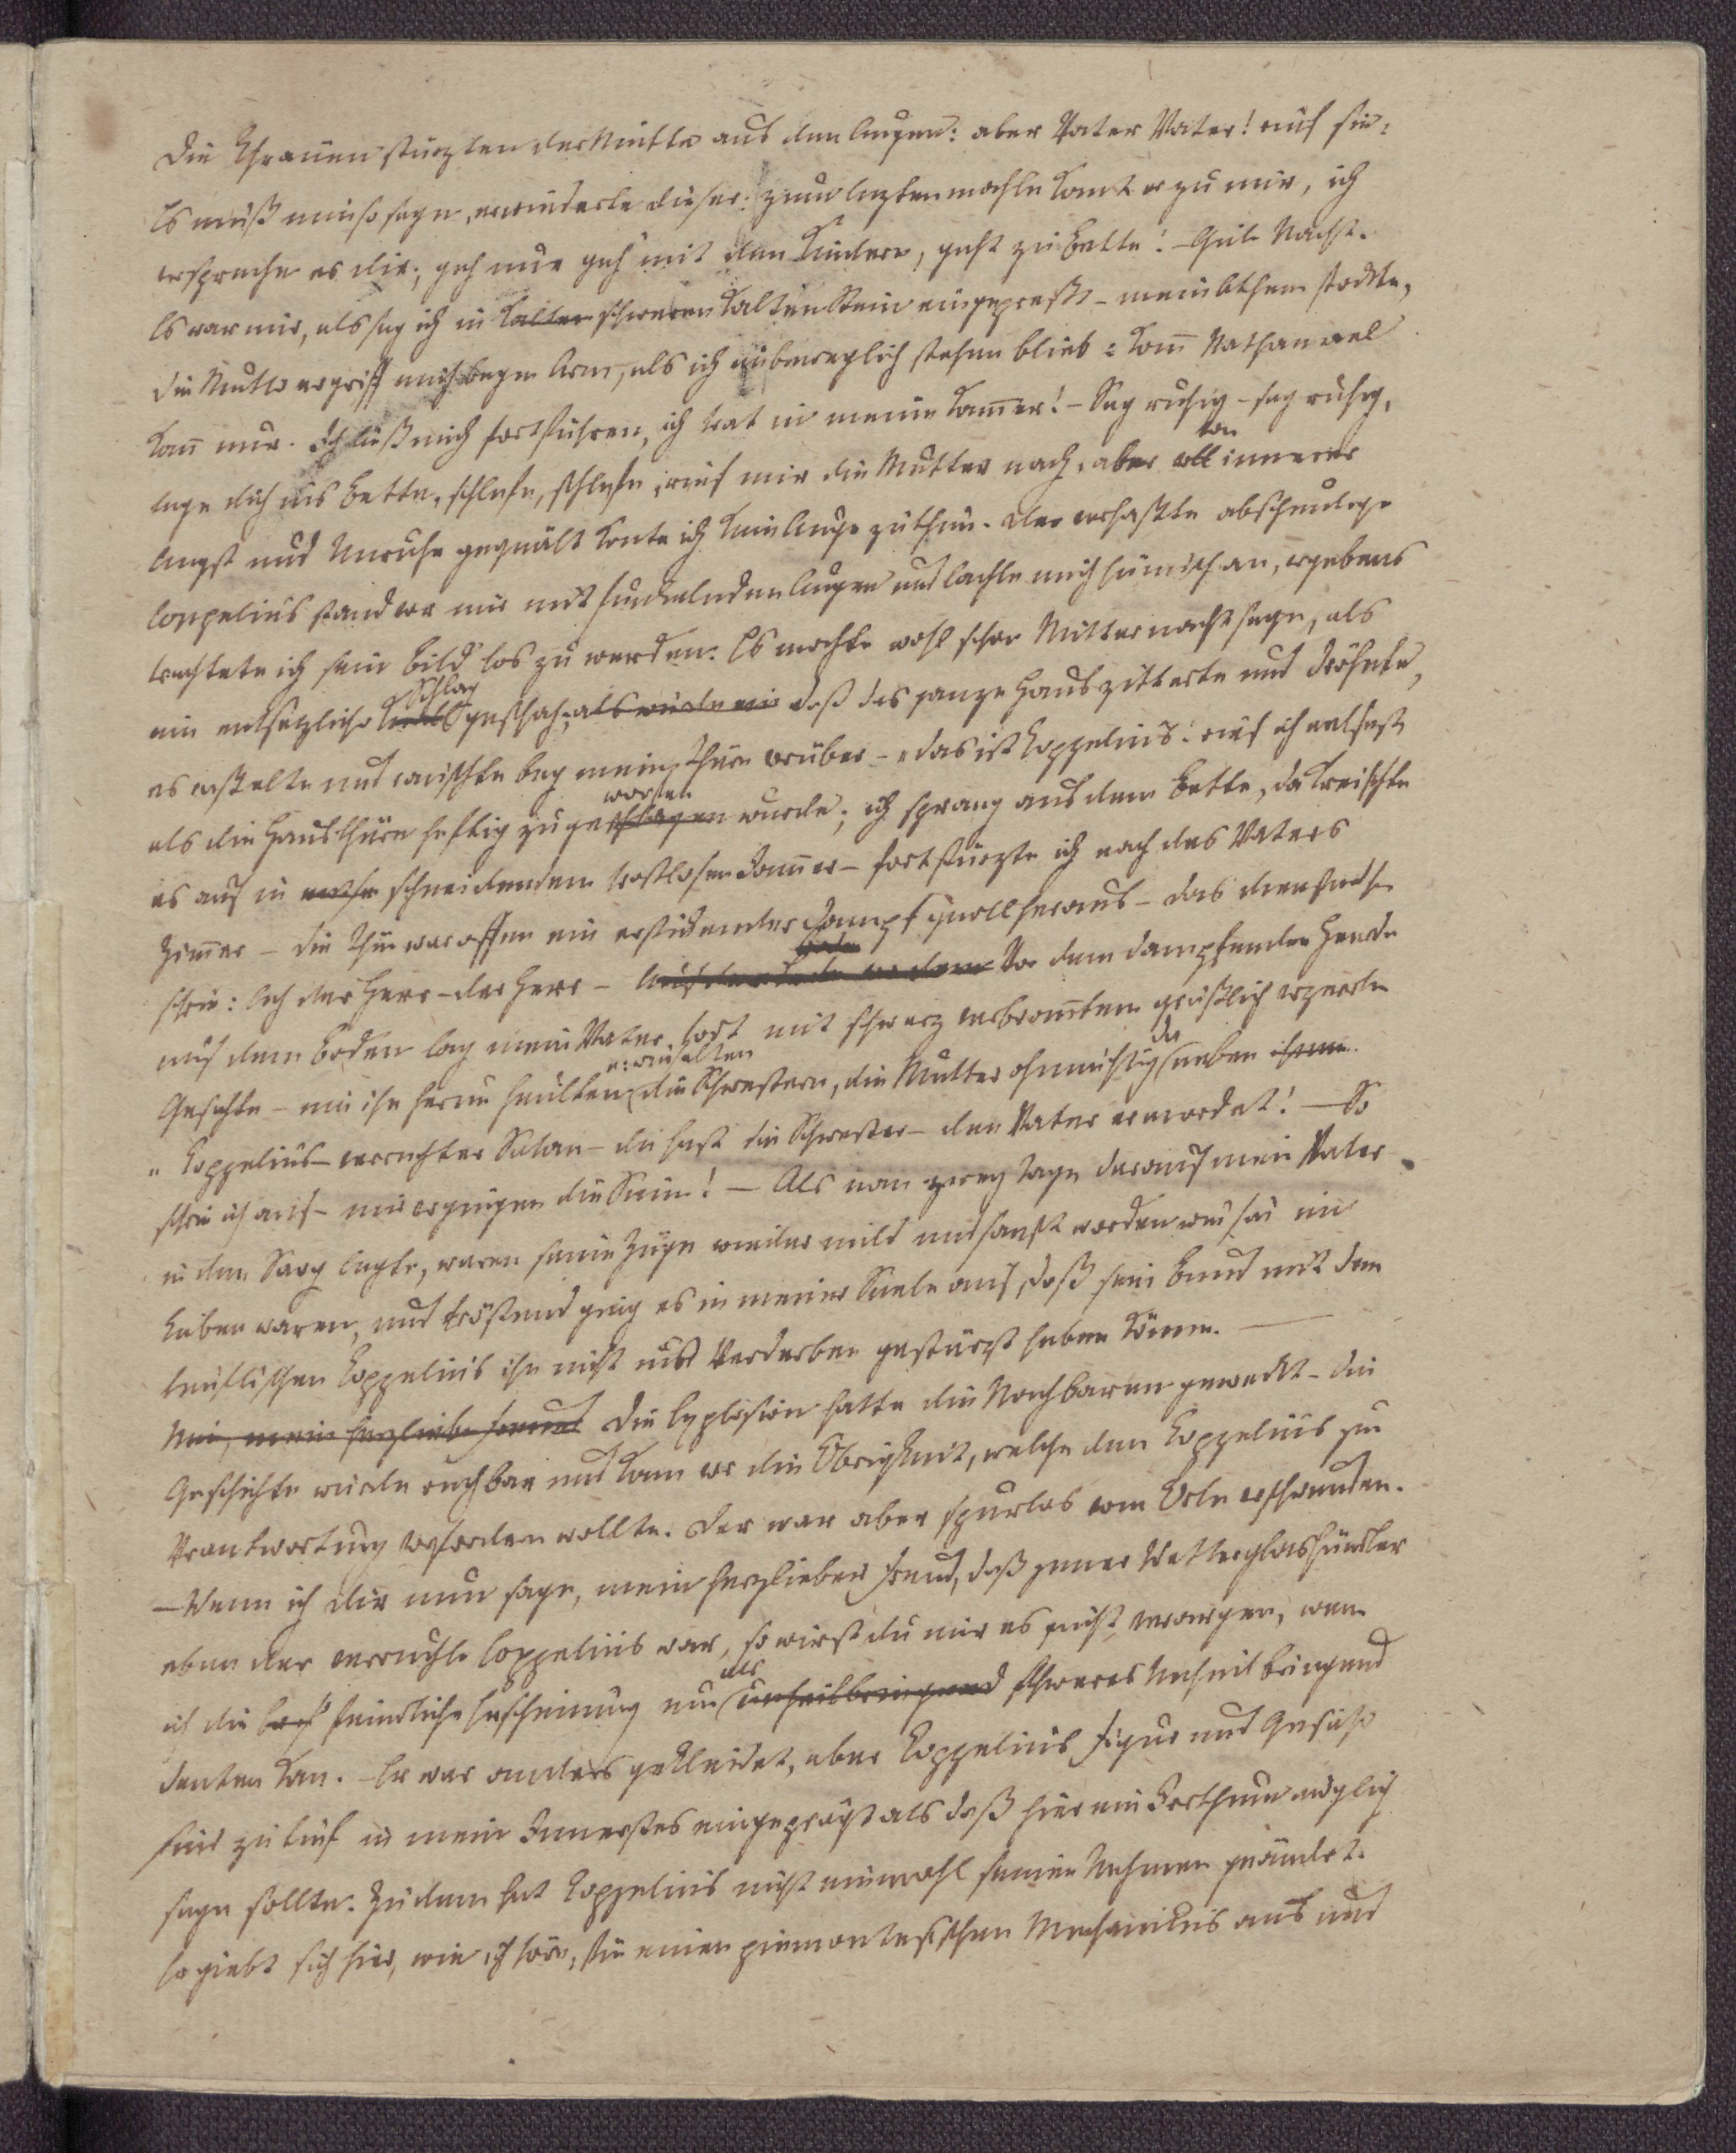 Die Thränen stürzten der Mutter aus den Augen: aber Vater Vater! rief sie:
Es muß nun so seyn, erwiederte dieser: zum leztenmahle komt er zu mir, ich
verspreche es dir; geh nur geh mit den Kindern, geht zu Bette! – Gute Nacht.
Es war mir, als sey ich in kalten schweren kalten Stein eingepreßt – mein Athem stockte,
die Mutter ergriff mich beym Arm, als ich unbeweglich stehen blieb: Kom̄ Nathanael
kom̄ nur. Ich ließ mich fortführen, ich trat in meine Kam̄er! – Sey ruhig – sey ruhig,
lege dich ins Bette, schlafe, schlafe, rief mir die Mutter nach, aber von innerer
Angst und Unruhe gequält konte ich kein Auge zuthun. Der verhaßte abscheuliche
Coppelius stand vor mir mit funkelnden Augen und lachte mich hämisch an, vergebens
trachtete ich sein Bild los zu werden. Es mochte wohl schon Mitternacht seyn, als
ein entsetzlicher Schlag geschah, als würde ein daß das ganze Haus zitterte und dröhnte,
es raßelte und rauschte bey meiner Thüre vorüber – das ist Coppelius: rief ich entsezt
als die Hausthüre heftig zugeschlagen worfen wurde; ich sprang aus dem Bette, da kreischte
es auf in schneidendem trostlosen Jam̄er – fort stürzte ich nach des Vaters
Zim̄er – die Thür war offen ein erstickender Dampf quoll heraus – das Dienstmädchen
schrie: Ach der Herr – der Herr – Vor dem dampfenden Heerde
auf dem Boden lag mein Vater todt mit schwarz verbran̄tem gräßlich verzerrten
Gesichte – um ihn herum heulten u: winselten die Schwestern, die Mutter ohnmächtig da neben
„Coppelius verruchter Satan – du hast die Schwester – den Vater ermordet! – So
schrie ich auf – mir vergingen die Sinne! – Als man zwey Tage darauf mein Vater
in den Sarg legte, waren seine Züge wieder mild und sanft worden wie sie im
Leben waren, und tröstend ging es in meiner Seele auf, daß sein Bund mit dem
teuflischen Coppelius ihn nicht ins Verderben gestürzt haben könne. –
Nun, mein herzlieber Freund Die Explosion hatte die Nachbaren geweckt – die
Geschichte wurde ruchbar und kam vor die Obrigkeit, welche den Coppelius zur
Verantwortung vorfordern wollte. Der war aber spurlos vom Orte verschwunden.
– Wenn ich dir nun sage, mein herzlieber Freund, daß jener Wetterglashändler
eben der verruchte Coppelius war, so wirst du mir es nicht verargen, wenn
ich die feindliche Erscheinung nur als unheilbringend schweres Unheil bringend
deuten kan. – Er war anders gekleidet, aber Coppelius Figur und Gesicht
sind zu tief in mein Innerstes eingeprägt als daß hier ein Irrthum möglich
seyn sollte. Zudem hat Coppelius nicht einmahl seinen Nahmen geändert.
Er giebt sich hier, wie ich höre, für einen piemontesischen Mechanikus aus und